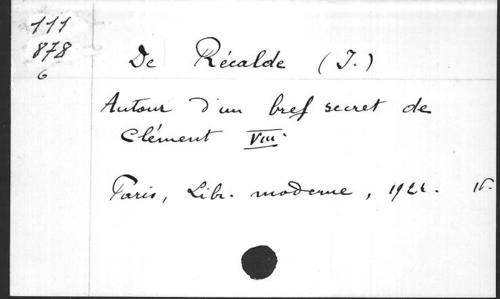 111
878
6
De Récalde (I.)
Autour d'un bref secret de
Clément VIII.
Paris, Libr. moderne, 192